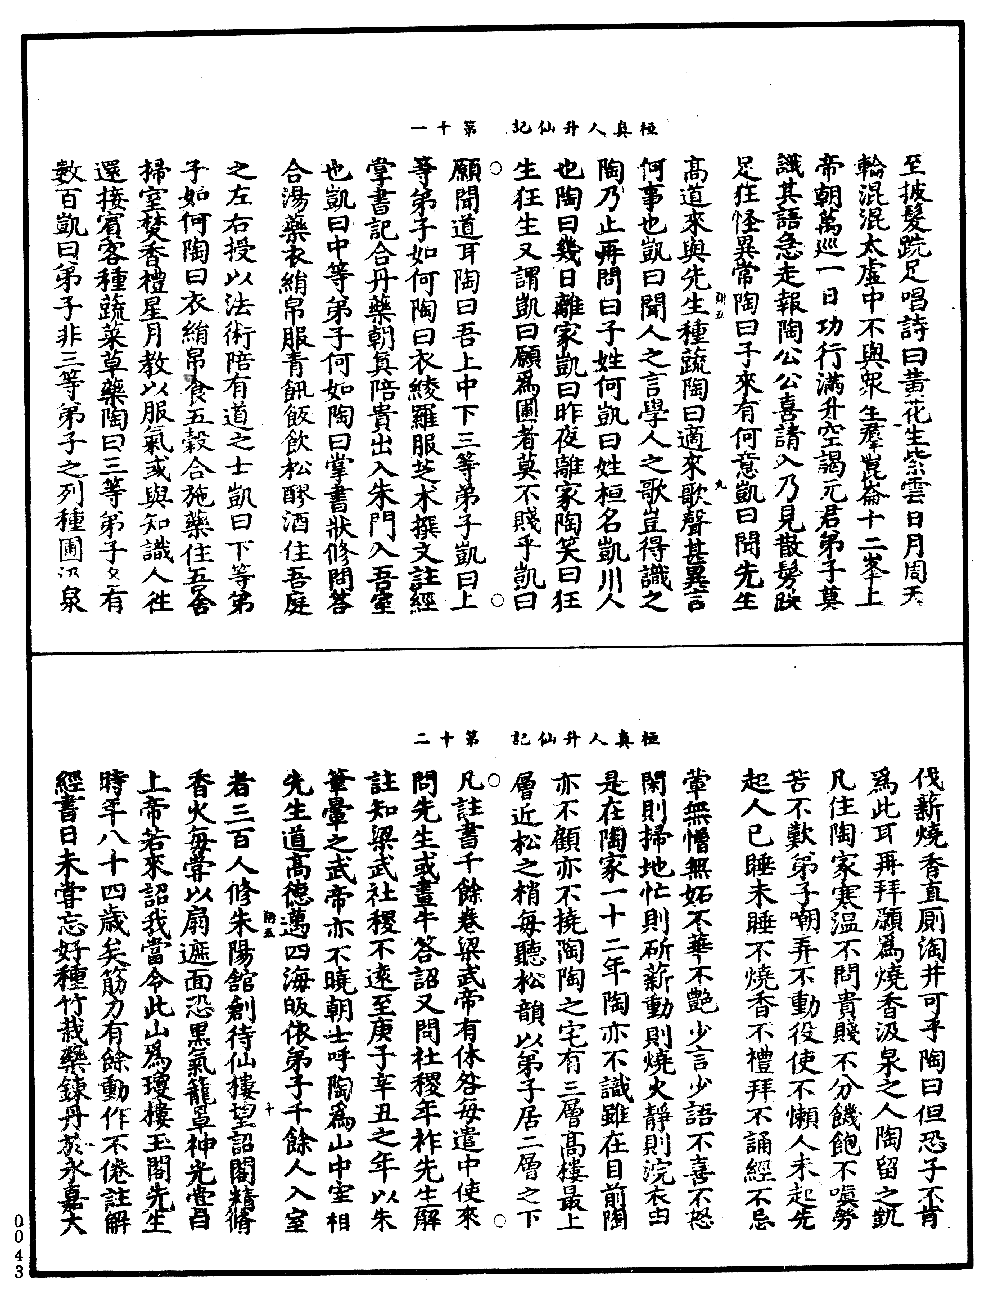 桓真人升仙記　第十一
至披髮跣足唱詩曰黃花生紫雲日月周天
輪混混太虛中不與眾生羣崑崙十二峯上
帝朝萬巡一日功行滿升空謁元君弟子莫
識其語急走報陶公公喜請入乃見散髣跣
足狂怪異常陶曰子來有何意凱曰聞先生
高道來與先生種蔬陶曰適來歌聲甚異言
何事也凱曰聞人之言學人之歌豈得識之
陶乃止再問曰子姓何凱曰姓桓名凱川人
也陶曰幾日離家凱曰昨夜離家陶笑曰狂
生狂生又謂凱曰願爲圃者莫不賤乎凱曰
願聞道耳陶曰吾上中下三等弟子凱曰上
等弟子如何陶曰衣綾羅服芝朮撰文註經
掌書記合丹藥朝真陪貴出入朱門入吾室
也凱曰中等弟子何如陶曰掌書狀修問答
合湯藥衣綃帛服青飢飯飲松醪酒住吾庭
之左右授以法術陪有道之士凱曰下等弟
子如何陶曰衣綃帛食五穀合施藥住吾舍
掃室焚香禮星月教以服氣或與知識人徃
還接賓客種蔬菜草藥陶曰三等弟子各有
數百凱曰弟子非三等弟子之列種圃汲泉
桓真人升仙記　第十二
伐薪燒香直厠淘井可乎陶曰但恐子不肯
爲此耳再拜願爲燒香汲泉之人陶留之凱
凡住陶家寒溫不問貴賤不分饑飽不嗔勞
苦不歎弟子嘲弄不動役使不懶人未起先
起人已睡未睡不燒香不禮拜不誦經不忌
葷無憎無妬不華不艷少言少語不喜不怒
閑則掃地忙則斫薪動則燒火靜則浣衣由
是在陶家一十二年陶亦不識雖在目前陶
亦不顧亦不撓陶陶之宅有三層高樓最上
層近松之梢每聽松韻以弟子居二層之下
凡註書千餘卷梁武帝有休咎每遣中使來
問先生或畫牛答詔又問社稷年祚先生解
註知梁武社稷不遠至庚子辛丑之年以朱
筆暈之武帝亦不曉朝士呼陶爲山中宰相
先生道高德邁四海皈依弟子千餘人入室
者三百人修朱陽館創待仙樓望詔閣精脩
香火每嘗以扇遮面恐黑氣龍罩神光嘗曰
上帝若來詔我當令此山爲瓊樓玉閣先生
時年八十四歲矣筋力有餘動作不倦註解
經書日未嘗忘好種竹栽藥鍊丹於永嘉大
0043